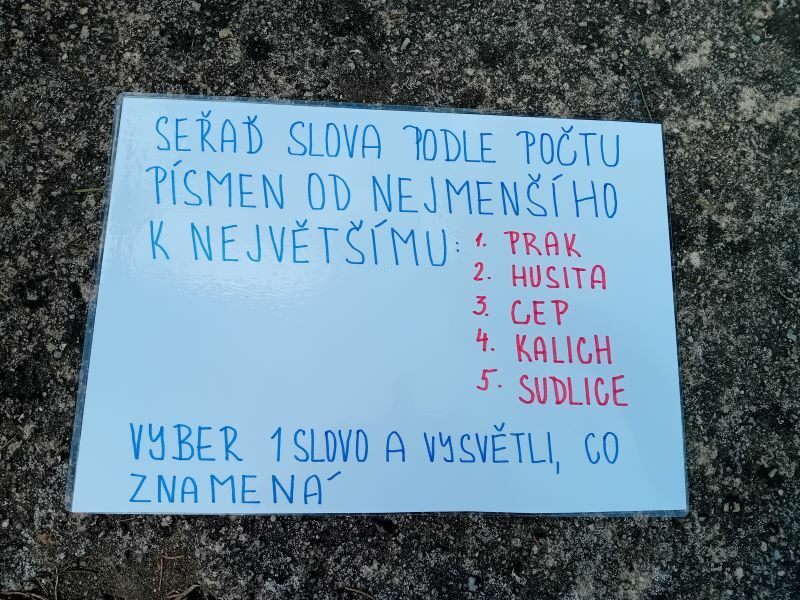 SEŘAĎ SLOVA PODLE POČTU
PÍSMEN OD NEJMENŠÍHO
K NEJVĚTŠÍMU:
1. PRAK
2. HUSITA
3. CEP
4. KALICH
5. SUDLICE
VYBER 1 SLOVO A VYSVĚTLI, CO
ZNAMENÁ